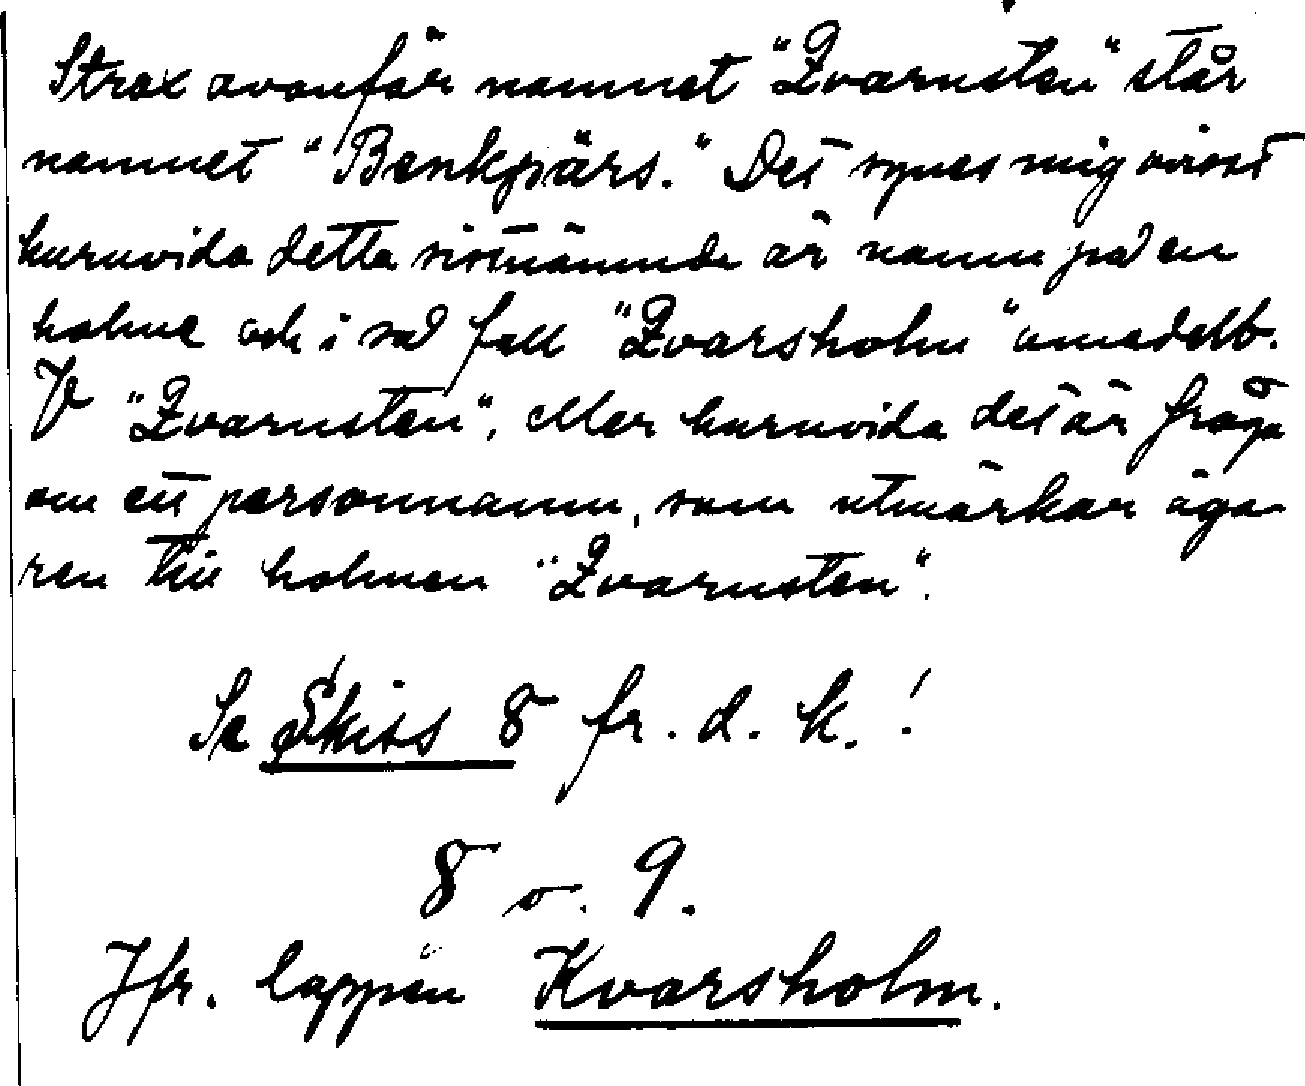 Strax ovanför namnet "Qvarnsten" står
namnet "Benkpärs." Det synes mig ovisst
huruvida detta sistnämnde är namn på en
holme och i så fall "Qvarsholm" omedelb.
V "Qvarnsten", eller huruvida det är fråga
om ett personnamn, som utmärker äga-
ren till holmen "Qvarnsten".
Se Skiss 8 fr. d. k.!
8 o. 9.
Jfr. lappen Kvarsholm.